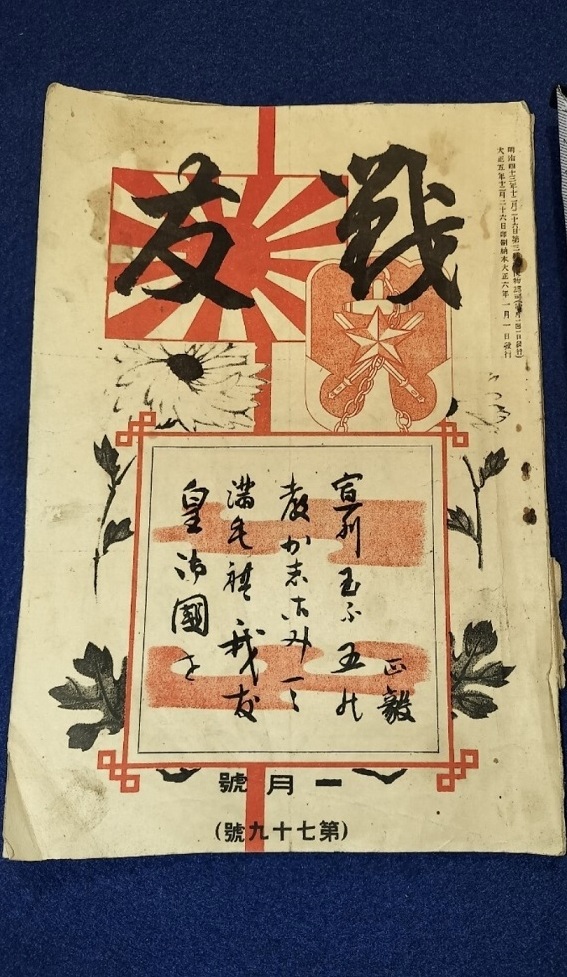 戰友
明治四十三年十二月二十六日第三種郵便物認可(每月一回一日發行)
大正五年十二月二十六日印刷納本大正六年一月一日發行
正毅
宣列玉ふ五能
教か志古み
満毛禮我友
皇御國を
一月號
(第七十九號)